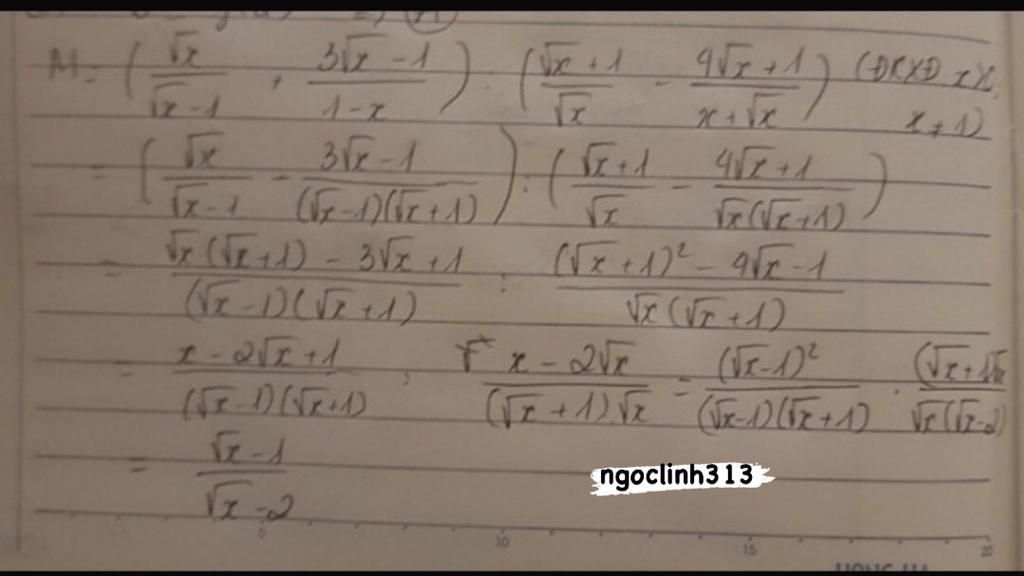 M = ( √x / (√x-1) + (3√x-1) / (1-x) ) : ( (√x+1) / √x - (4√x+1) / (x+√x) ) (ĐKXĐ x>
x≠1)
= ( √x / (√x-1) - (3√x-1) / ((√x-1)(√x+1)) ) : ( (√x+1) / √x - (4√x+1) / (√x(√x+1)) )
= (√x(√x+1) - 3√x+1) / ((√x-1)(√x+1)) : ((√x+1)² - 4√x-1) / (√x(√x+1))
= (x-2√x+1) / ((√x-1)(√x+1)) : (x-2√x) / ((√x+1).√x) = (√x-1)² / ((√x-1)(√x+1)) . (√x+1)√x / (√x(√x-2))
= (√x-1) / (√x-2)
ngoclinh313
10 15 20